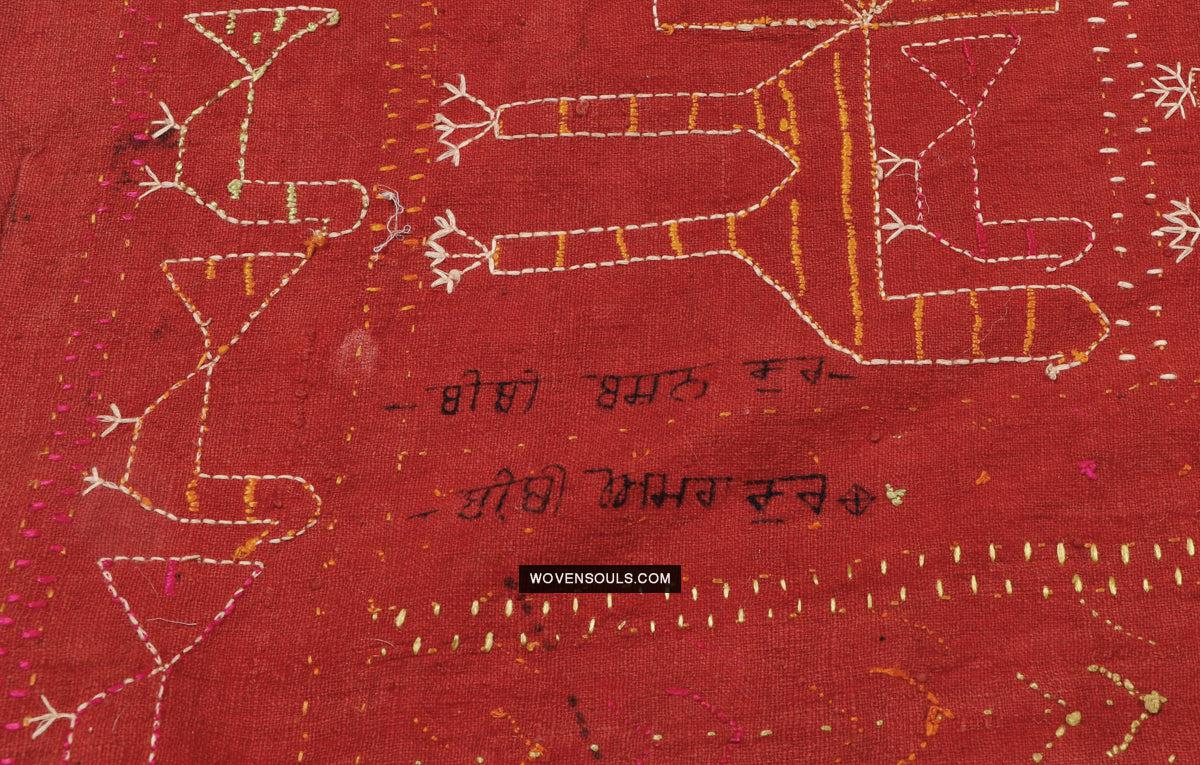 — ਬੀਬੀ ਬਸ਼ਨ ਕੁਰ —
— ਬੀਬੀ ਅਮਰ ਕੁਰ
WOVENSOULS.COM